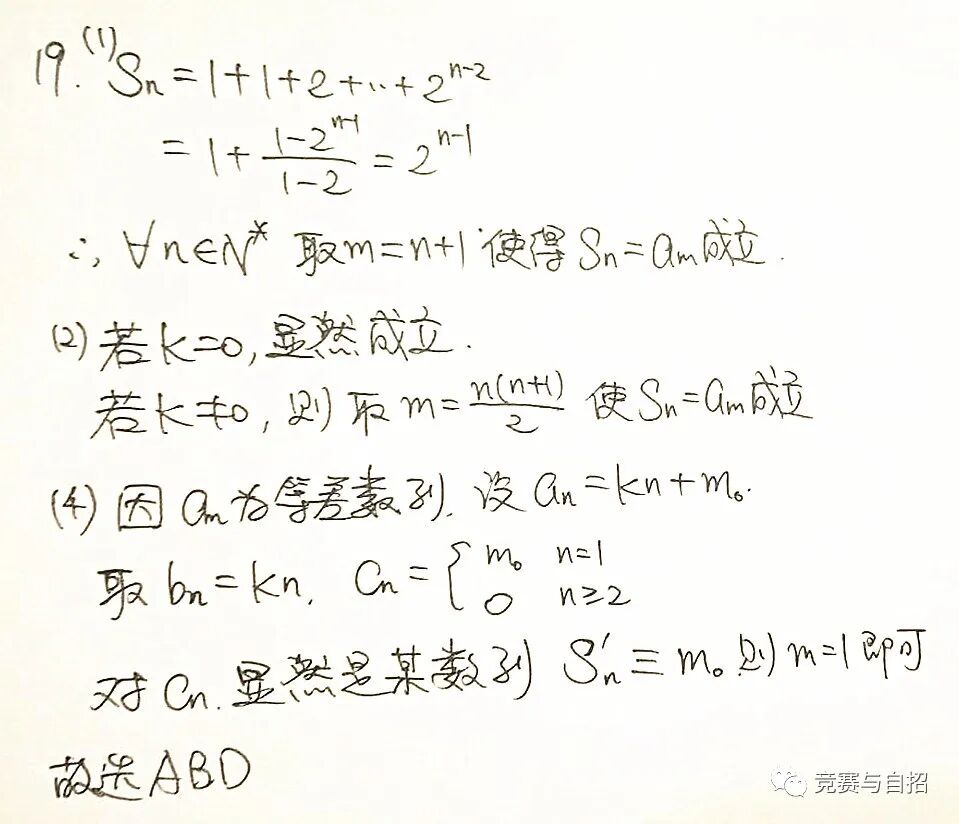 19. (1) Sn = 1+1+2+…+2^{n-2}
= 1 + \frac{1-2^{n-1}}{1-2} = 2^{n-1}
∴ ∀n∈N* 取m=n+1 使得 Sn=am成立.
(2) 若k=0, 显然成立.
若k≠0, 则 取 m=\frac{n(n+1)}{2} 使 Sn=am成立
(4) 因 am为等差数列. 设 an=kn+m₀.
取 bn=kn. Cn = { m₀ n=1
0 n≥2
对 Cn. 显然是某数列 S'n ≡ m₀ 则 m=1 即可
故选 ABD
竞赛与自招